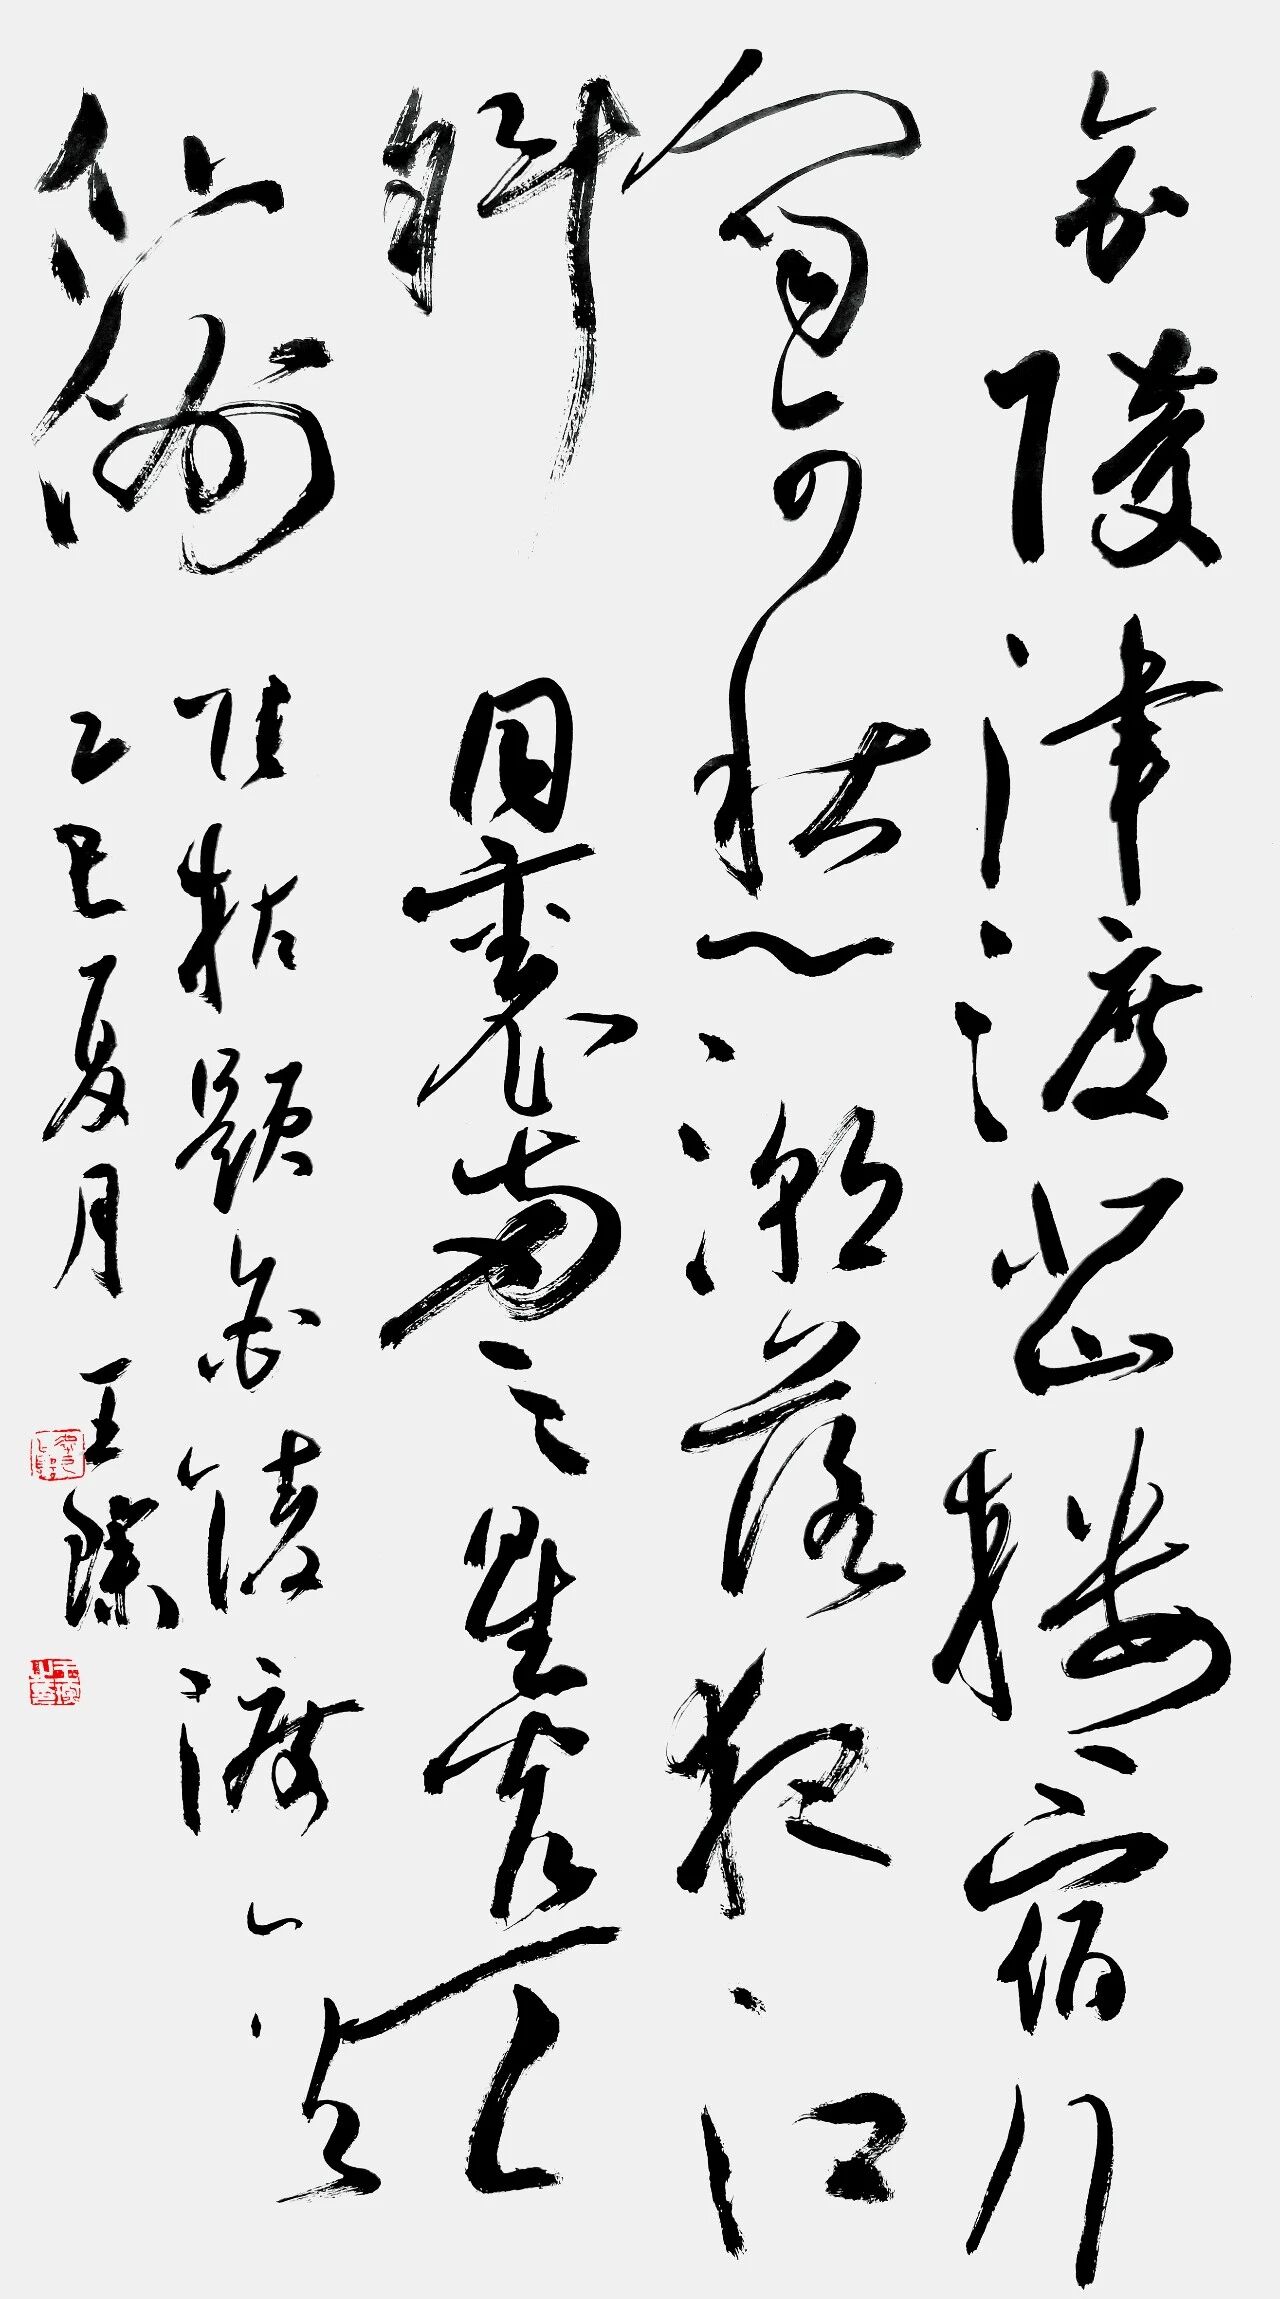 金陵津渡小山樓一宿行
人自可愁潮落夜江
斜月裏兩三星火是
瓜洲
張祜題金陵渡
乙巳夏月王